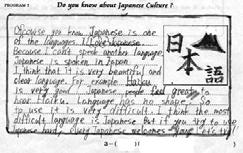 PROGRAM 7 Do you know about Japanese Culture ?
Ofcouse you know Japanese is one
of the languages. I Love Japanese.
Because I can't speak another language.
Japanese is spoken in Japan.
I think that it is very beautiful and
clear language. For example Haiku
is very good. Japanese people feel greatly
how Haiku. Language has no shape. So
to use it is very difficult. I think the most
difficult language is Japanese. But if you try to use
Japanese hard, every Japanese welcomes
日本語
2-( )( )